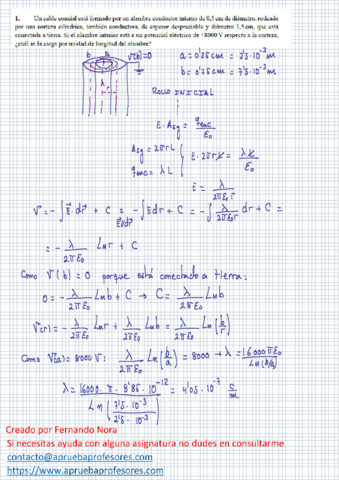 1. Un cable coaxial está formado por un alambre conductor interno de 0,5 cm de diámetro, rodeado
por una corteza cilíndrica, también conductora, de espesor despreciable y diámetro 1,5 cm, que está
conectada a tierra. Si el alambre interior está a un potencial eléctrico de +8000 V respecto a la corteza,
¿cuál es la carga por unidad de longitud del alambre?
b a V(b)=0 a = 0'25 cm = 2'5·10⁻³ m
b = 0'75 cm = 7'5·10⁻³ m
λ r
ROLLO INICIAL
E·A_sg = q_enc/ε₀
A_sg = 2πrL
q_enc = λL
E·2πrL = λL/ε₀
E = λ/(2πε₀r)
V = -∫E⃗·dr⃗ + C = -∫E dr + C = -∫ λ/(2πε₀r) dr + C =
E⃗∥dr⃗
= - λ/(2πε₀) Ln r + C
Como V(b) = 0 porque está conectado a tierra:
0 = - λ/(2πε₀) Ln b + C → C = λ/(2πε₀) Ln b
V(r) = - λ/(2πε₀) Ln r + λ/(2πε₀) Ln b = λ/(2πε₀) Ln(b/r)
Como V(a) = 8000 V: λ/(2πε₀) Ln(b/a) = 8000 → λ = 16000πε₀/Ln(b/a)
λ = 16000·π·8'85·10⁻¹² / Ln(7'5·10⁻³/2'5·10⁻³) = 4'05·10⁻⁷ C/m
Creado por Fernando Nora
Si necesitas ayuda con alguna asignatura no dudes en consultarme
contacto@apruebaprofesores.com
https://www.apruebaprofesores.com